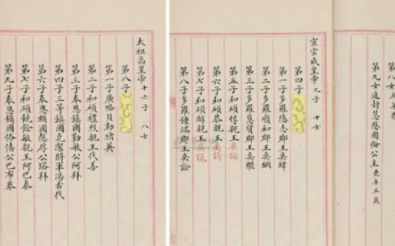 第九女追封慧愍固倫公主
宣宗成皇帝 九子 十女
第四子
第一子多羅隱志郡王奕緯
第二子多羅順和郡王奕綱
第三子多羅慧質郡王奕繼
第五子和碩惇親王奕誴
第六子和碩恭親王奕訢
第七子和碩醇親王奕譞
第八子多羅鍾端郡王奕詥
太祖高皇帝 十六子 八女
第八子
第一子廣略貝勒褚英
第二子和碩禮烈親王代善
第三子奉恩鎮國勤敏公阿拜
第四子三等鎮國克潔將軍湯古代
第六子奉恩輔國愨厚公塔拜
第七子和碩饒餘敏親王阿巴泰
第九子奉恩鎮國恪僖公巴布泰